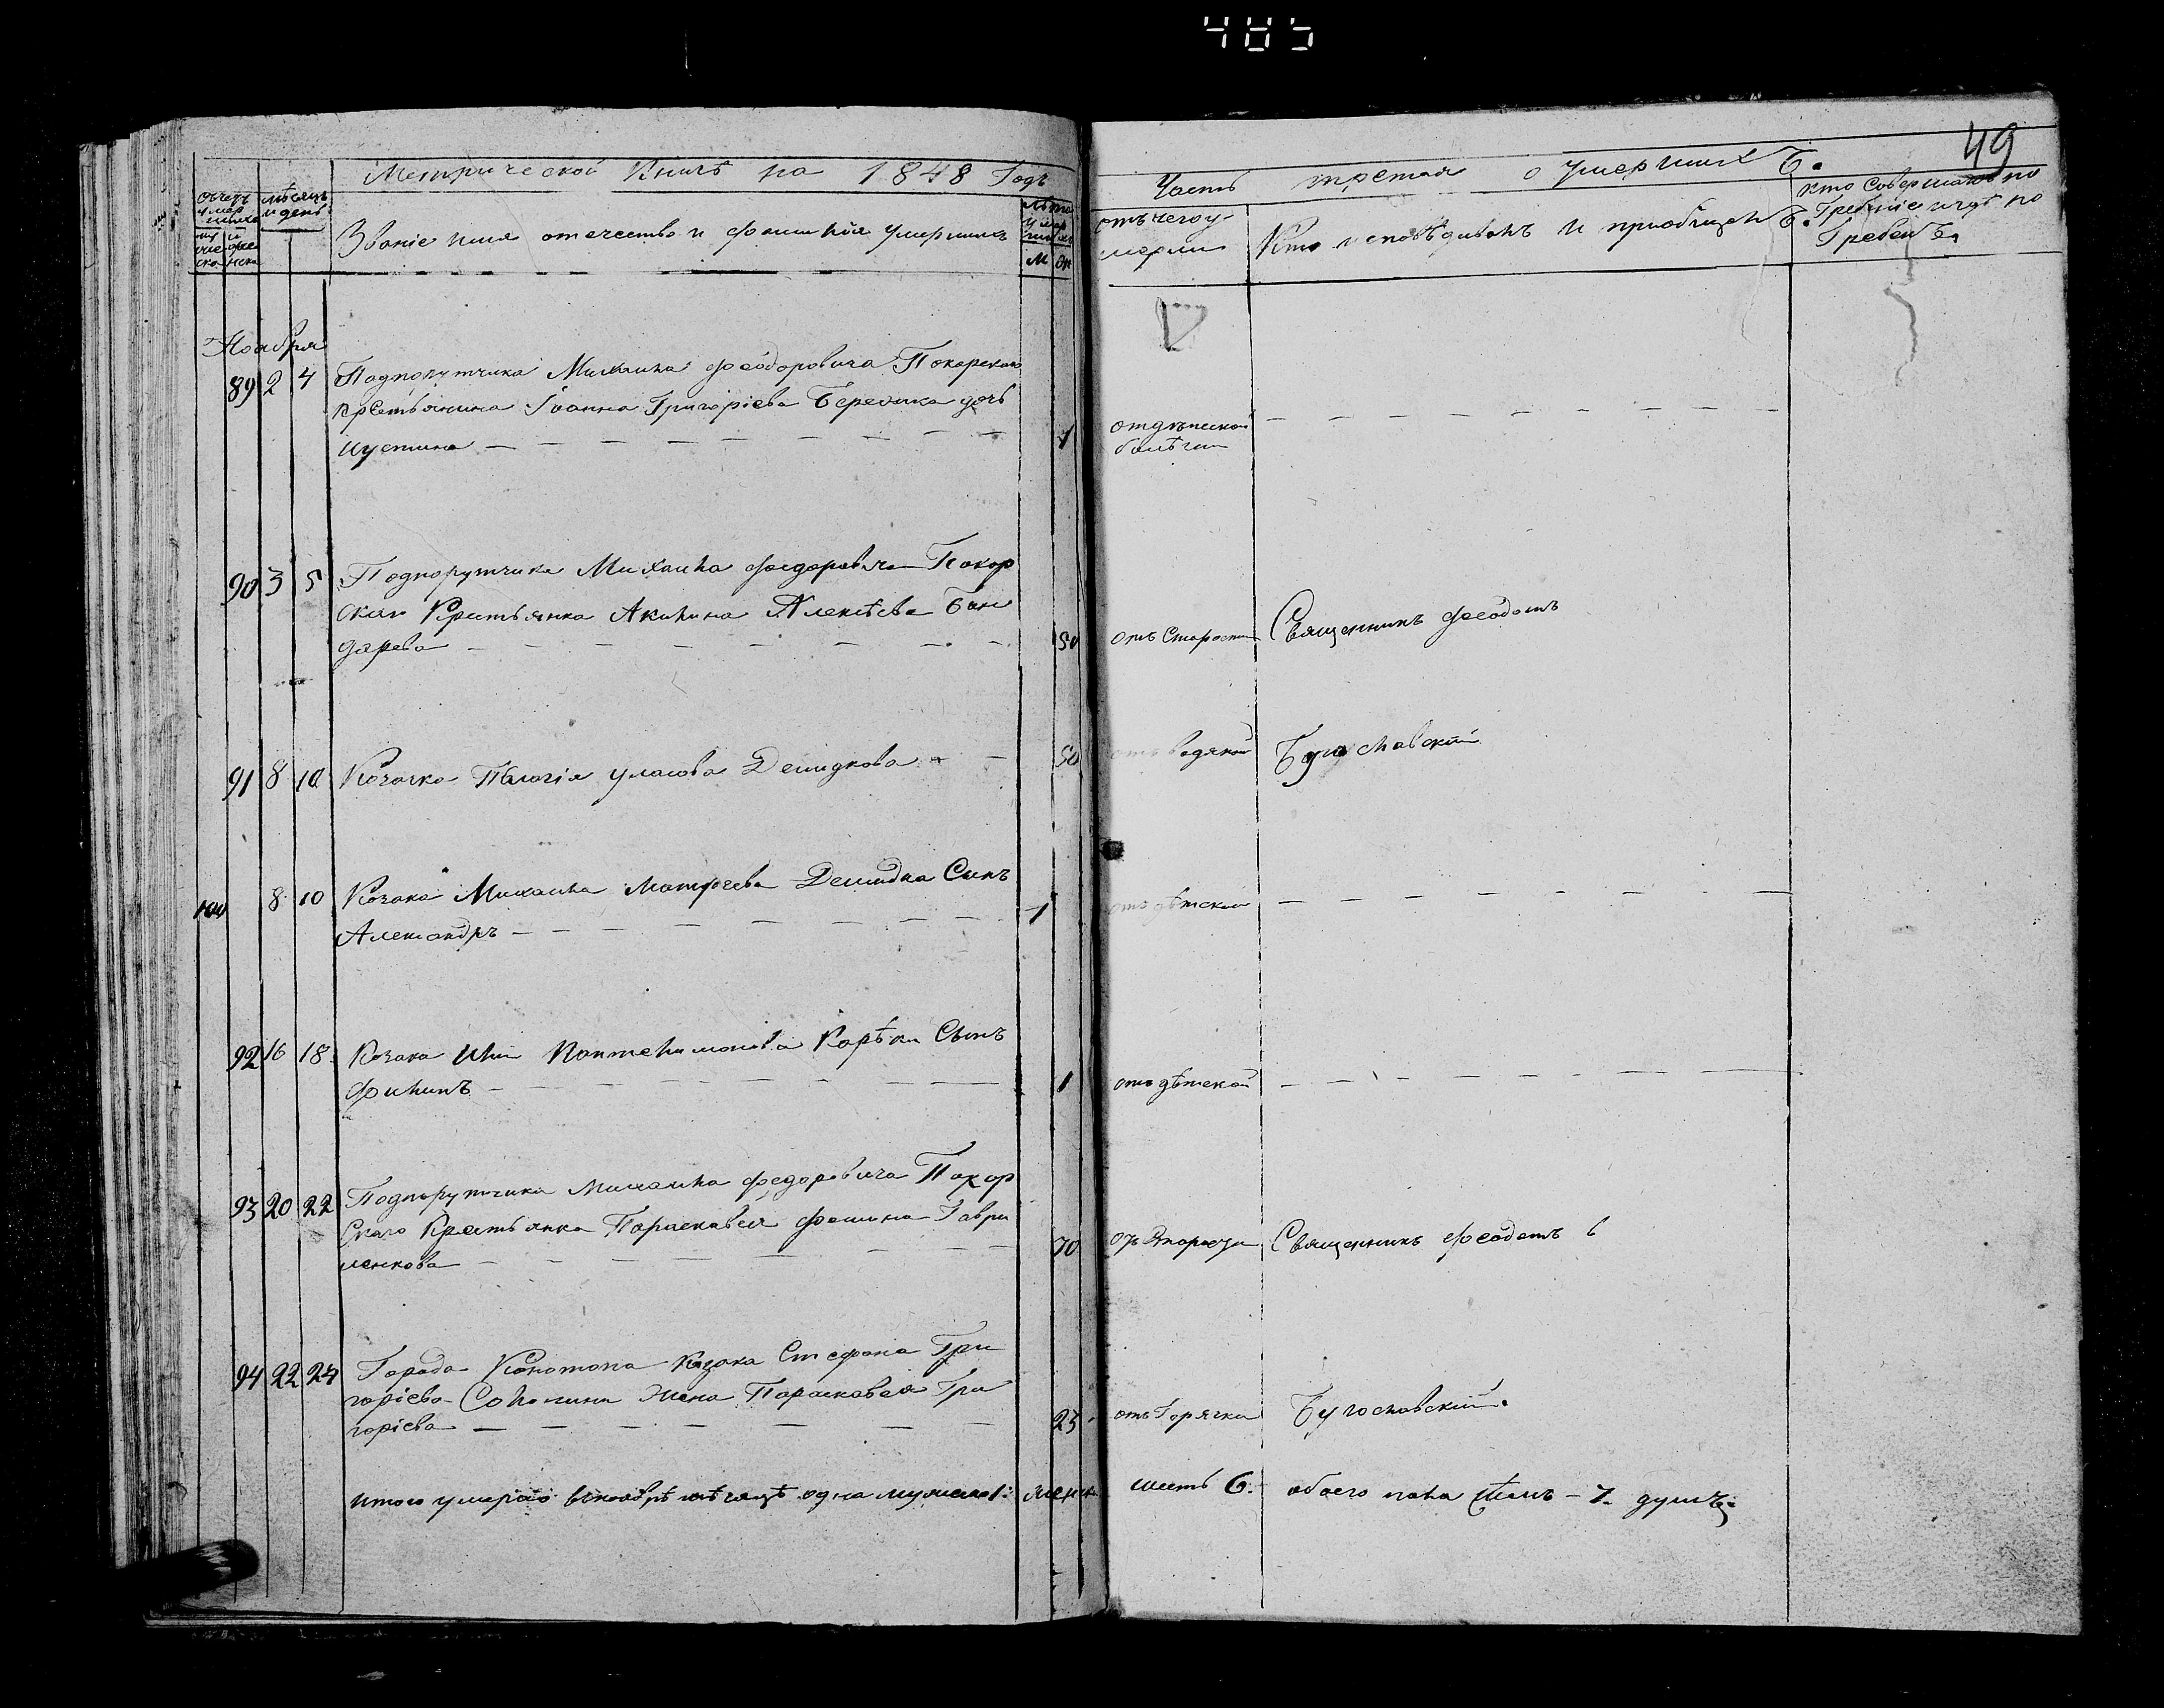 485
49
Метрической Книгѣ на 1848 Годъ
Часть третая о умершихъ.
Счетъ умершихъ
мѣсяцъ и день
Званіе имя отечество и фамилія умершихъ
Лѣта умершихъ
М Ж
отъ чего умерли
Кто исповѣдивалъ и приобщилъ.
кто Совершалъ погребеніе и гдѣ погребены
Ноабрія
89 2 4 Подпорутчика Михаила Феодоровича Покорскаго
крестьянина Іоанна Григоріева дочь
Иустина 1 от дѣтской
90 3 5 Подпорутчика Михаила Федоровича Покор
скаго Крестьянка Акилина Алексѣева Бон
дарева 50 отъ Старости Священникъ Феодотъ
91 8 10 Козачка Пелагія Уласова Демидкова 50 отъ водяной Бугославский
100 8 10 Козака Михаила Матфеева Демидка Синъ
Александръ 1 отъ дѣтской
92 16 18 Козака Иліи Пантелимонова Сынъ
Филипъ 1 отъ дѣтской
93 20 22 Подпорутчика Михаила Федоровича Покор
скаго Крестьянка Параскавея Фомина Гаври
ленкова 70 отъ Старости Священникъ Феодотъ
94 22 24 Города Конотопа Козака Стефана Гри
горіева Солонини Жена Параскавея Гри
горіева 23 отъ Горячки Бугославский.
итого умерло в ноабрѣ мѣсяцѣ одна мужеска 1: женска шесть 6. обоего пола семь - 7. душъ